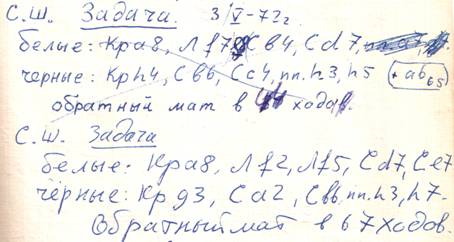 С.Ш. Задача. 3/V-72г
белые: Кра8, Лf7, Св4, Сd7,
чёрные: Крh4, Св6, Сс4, пп. h3, h5 (+ ав65)
обратный мат в ходов.
С.Ш. Задача
белые: Кра8, Лf2, Лf5, Сd7, Се7
чёрные: Крg3, Са2, Св6, пп. h3, h7.
Обратный мат в 67 ходов.